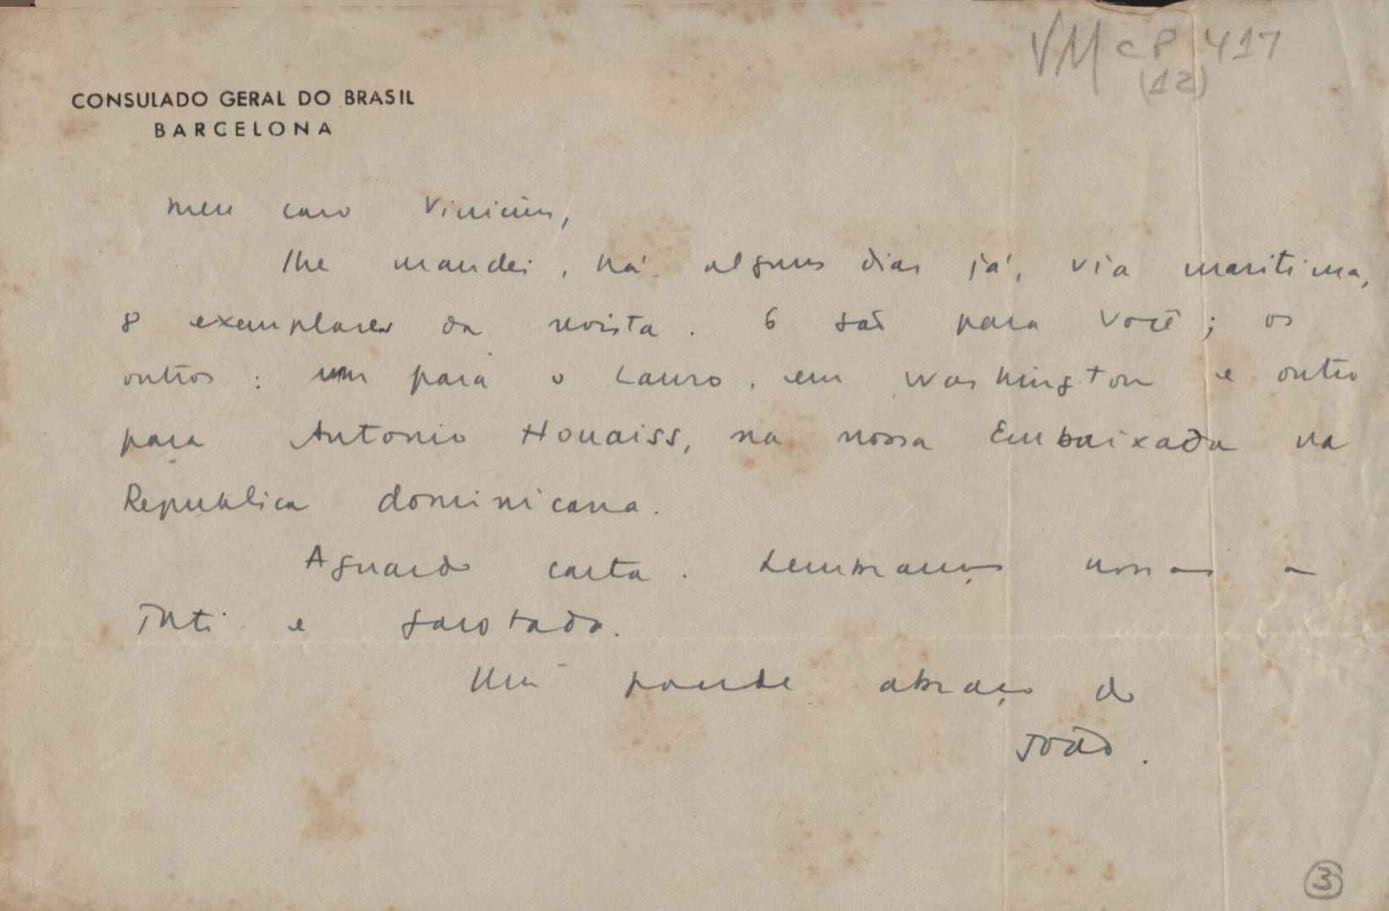 VM CP 417
(12)
CONSULADO GERAL DO BRASIL
BARCELONA
Meu caro Vinicius,
lhe mandei, há alguns dias já, via maritima,
8 exemplares da revista. 6 são para você; os
outros: um para o Lauro, em Washington e outro
para Antonio Houaiss, na nossa Embaixada na
Republica dominicana.
Aguardo carta. Lembranças nossas a
Tati e garotada.
Um grande abraço do
João.
3